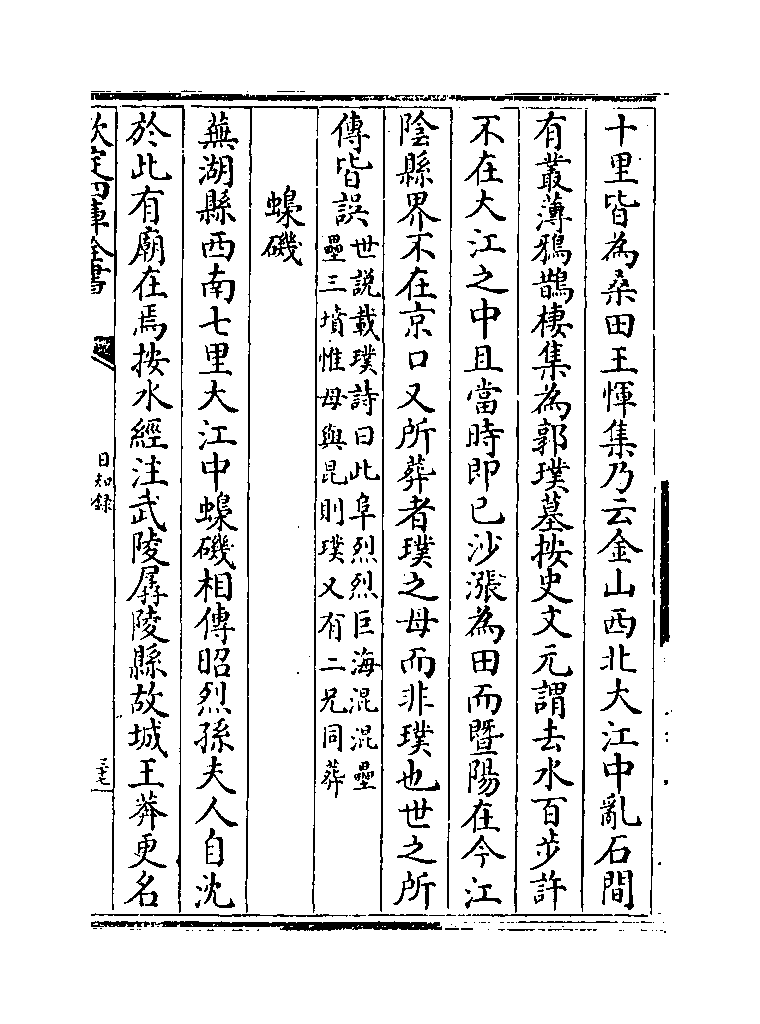 十里皆為桑田王惲集乃云金山西北大江中亂石間
有叢薄鴉鵲棲集為郭璞墓按史文元謂去水百步許
不在大江之中且當時即已沙漲為田而暨陽在今江
陰縣界不在京口又所葬者璞之母而非璞也世之所
傳皆誤世説載璞詩曰此阜烈烈巨海混混壘
壘三墳惟母與昆則璞又有二兄同葬
蟂磯
蕪湖縣西南七里大江中蟂磯相傳昭烈孫夫人自沈
於此有廟在焉按水經注武陵孱陵縣故城王莽更名
欽定四庫全書
日知錄
三十七